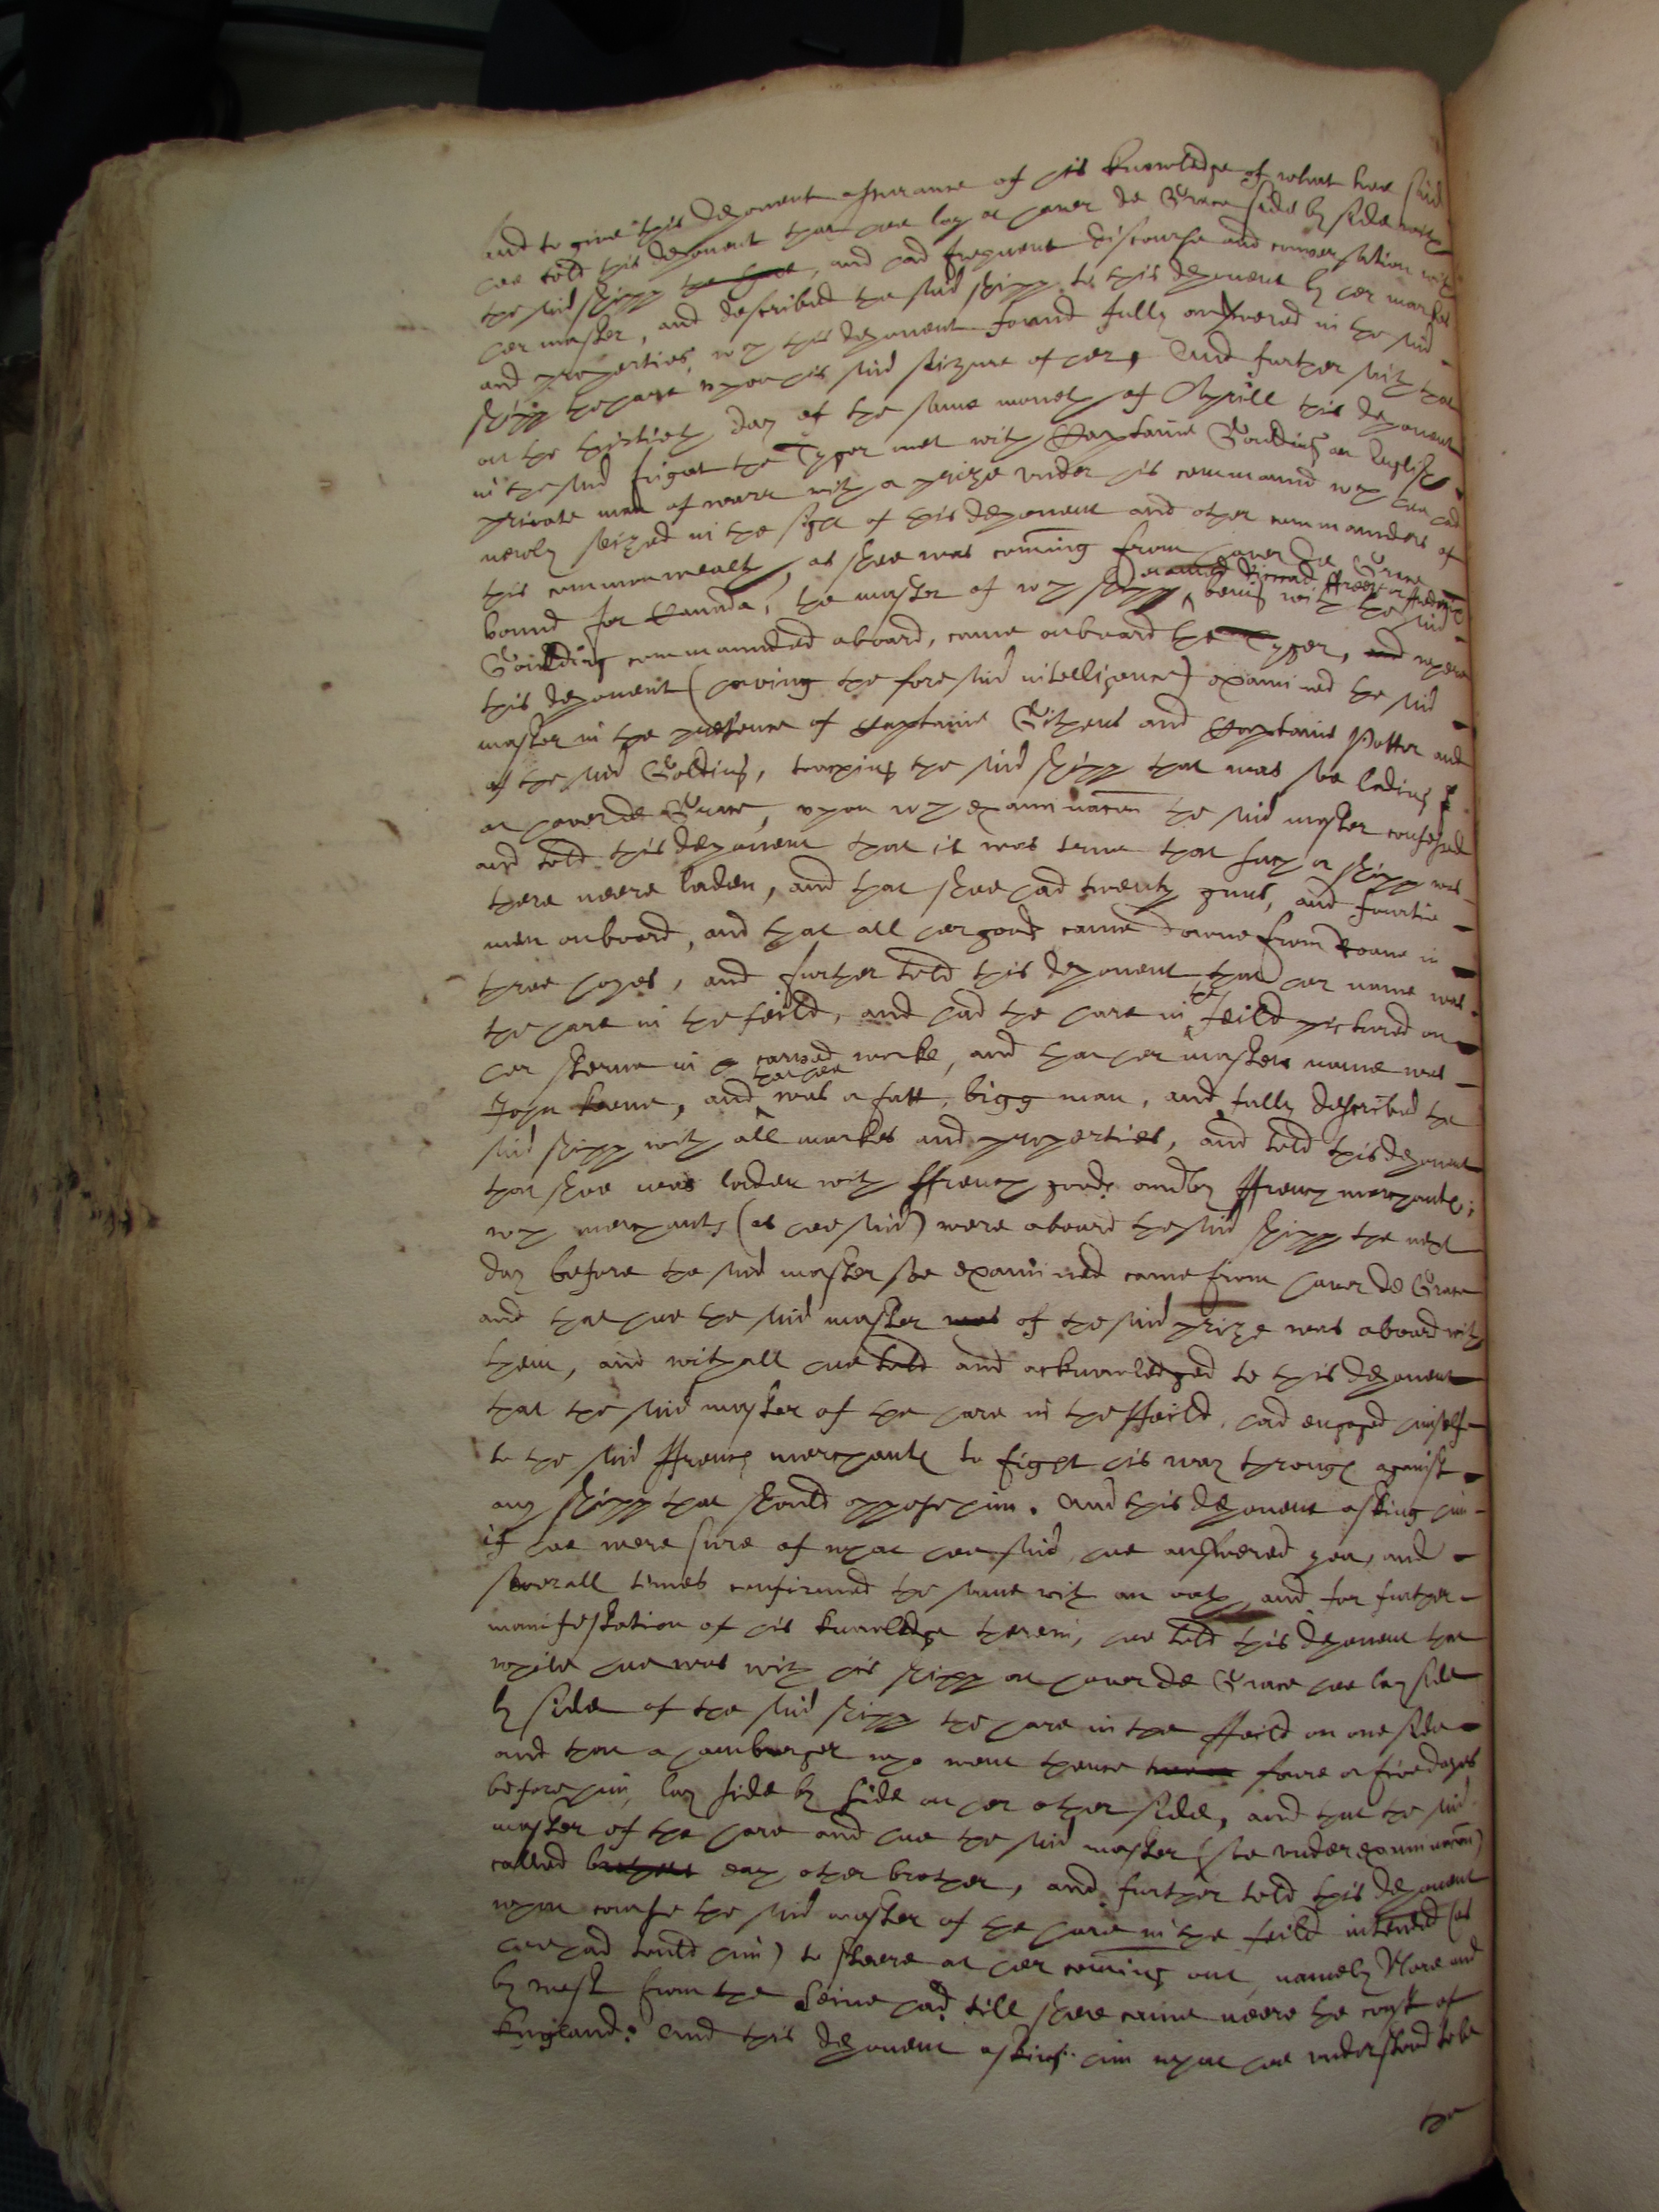 and to give this deponent assurance of his knowledge of what hee said
hee told this deponent that hee lay at haver de Grace side by side with
the said shipp the hare, and had frequent discourse and conversation with
her master, and described the said shipp to this deponent by her markes
and properties, wch this deponent found fully answered in the said
shipp the hare upon his said seizure of her, And further saith that
on the thirtieth day of the same moneth of Aprill this deponent
in the said frigat the Tyger met with Captaine Goulding an English
private man of warr with a prize under his command wch hee had
newly seized in the sight of this deponent and other commanders of
this commonwealth, as shee was coming from haver de Grace
bound for Canada, the master of wch shipp being with the said
Goulding commaunded aboard, came onboard the Tyger, and where
this deponent (having the foresaid intelligence) examined the said
master in the presence of Captaine Githens and Captaine Potter and
of the said Golding, touching the said shipp that was soe lading
at haver de Grace, upon wch examinacon the said master confessed
and told this deponent that it was true that such a shipp was
there neere laden, and that shee had twenty guns, and fourtie
men onboard, and that all her goods came downe from Roane in
three hoyes, and further told this deponent that her name was
the hare in the feild, and had the hare in the feild pictured on
her sterne in a carved worke, and that her masters name was
John Keene, and that hee was a fatt, bigg man, and fully described the
said shipp with all markes and properties, and told this deponent
that shee was laden with ffrench goods and by ffrench merchants;
wch merchants (as hee said) were aboard the said shipp the next
day before the said master soe examined came from haver de Grace
and that hee the said master was of the said prize was aboard with
them, and withall hee told and acknowledged to this deponent
that the said master of the hare in the ffeild, had engaged himself
to the said ffrench merchants to fight his way through against
any shipp that should oppose him. And this deponent asking him
if hee were sure of what hee said, hee answered yea, and
severall times confirmed the same with an oath, and for further
manifestation of his knowledge therein, hee told this deponent that
while hee was with his shipp at haver de Grace hee lay side
by side of the said shipp the hare in the ffeild on one side
and that a hamburger who went thence foure or five dayes
before him, lay side by side on her other side, and that the said
master of the hare and hee the said master (soe under examinacon)
called brothers each other brother, and further told this deponent
what course the said master of the hare in the feild intended (as
hee had tould him) to steere at her coming out, namely Nore and
by west from the Seine head, till shee came neere the coast of
England. And this deponent asking him what hee understood to be
the